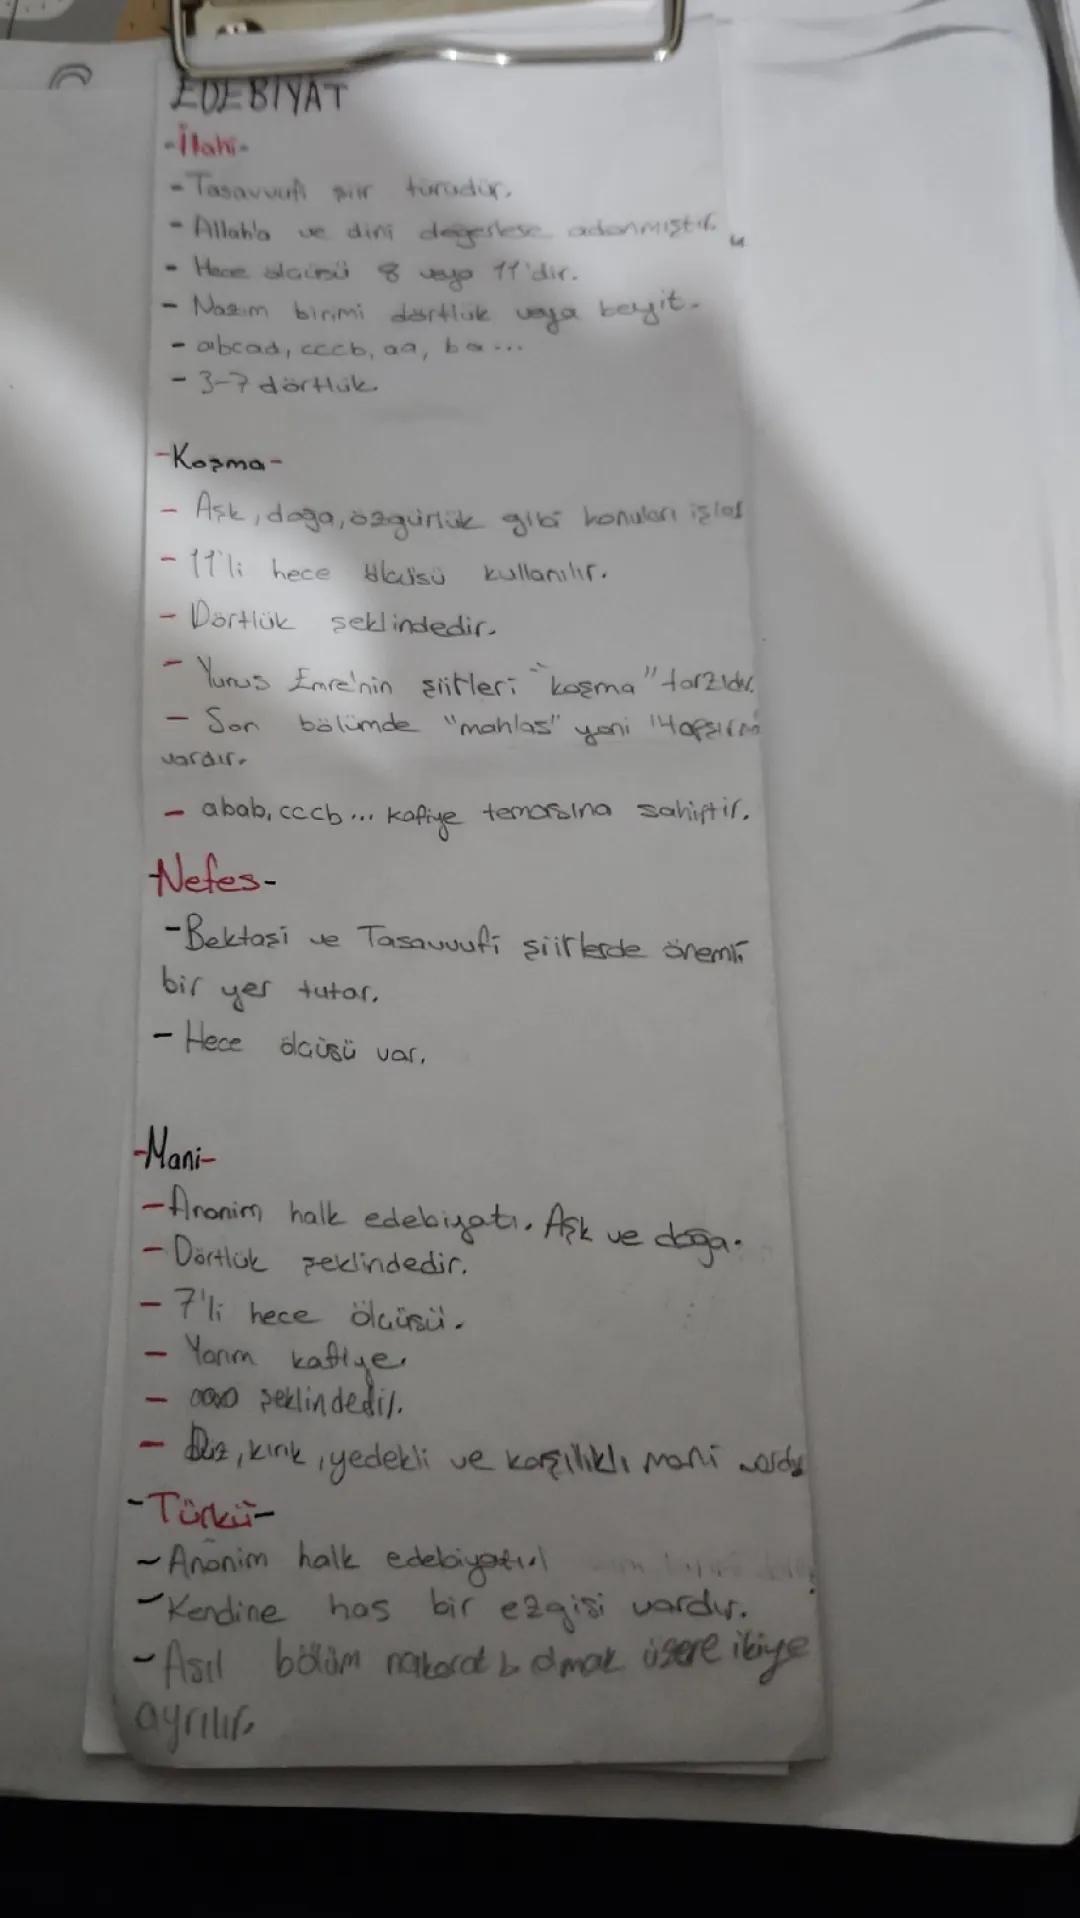 EDEBİYAT
-İlahi-
- Tasavvufi şiir türüdür.
- Allah'a ve dini değerlere adanmıştır.
- Hece ölçüsü 8 veya 11'dir.
- Nazım birimi dörtlük veya beyit.
- abcad, cccb, aa, ba...
- 3-7 dörtlük.
-Koşma-
- Aşk, doğa, özgürlük gibi konuları işler
- 11'li hece ölçüsü kullanılır.
- Dörtlük şeklindedir.
- Yunus Emre'nin şiirleri "koşma" tarzıdır.
- Son bölümde "mahlas" yani
vardır.
- abab, cccb... kafiye temasına sahiptir.
-Nefes-
-Bektaşi ve Tasavvufi şiirlerde önemli
bir yer tutar.
- Hece ölçüsü var.
-Mani-
-Anonim halk edebiyatı. Aşk ve doğa.
- Dörtlük şeklindedir.
- 7'li hece ölçüsü.
- Yarım kafiye.
- şeklindedir.
- Düz, kırık, yedekli ve karşılıklı mani vardır
-Türkü-
-Anonim halk edebiyatı.
-Kendine has bir ezgisi vardır.
-Asıl bölüm nakarat b. olmak üzere ikiye
ayrılır.